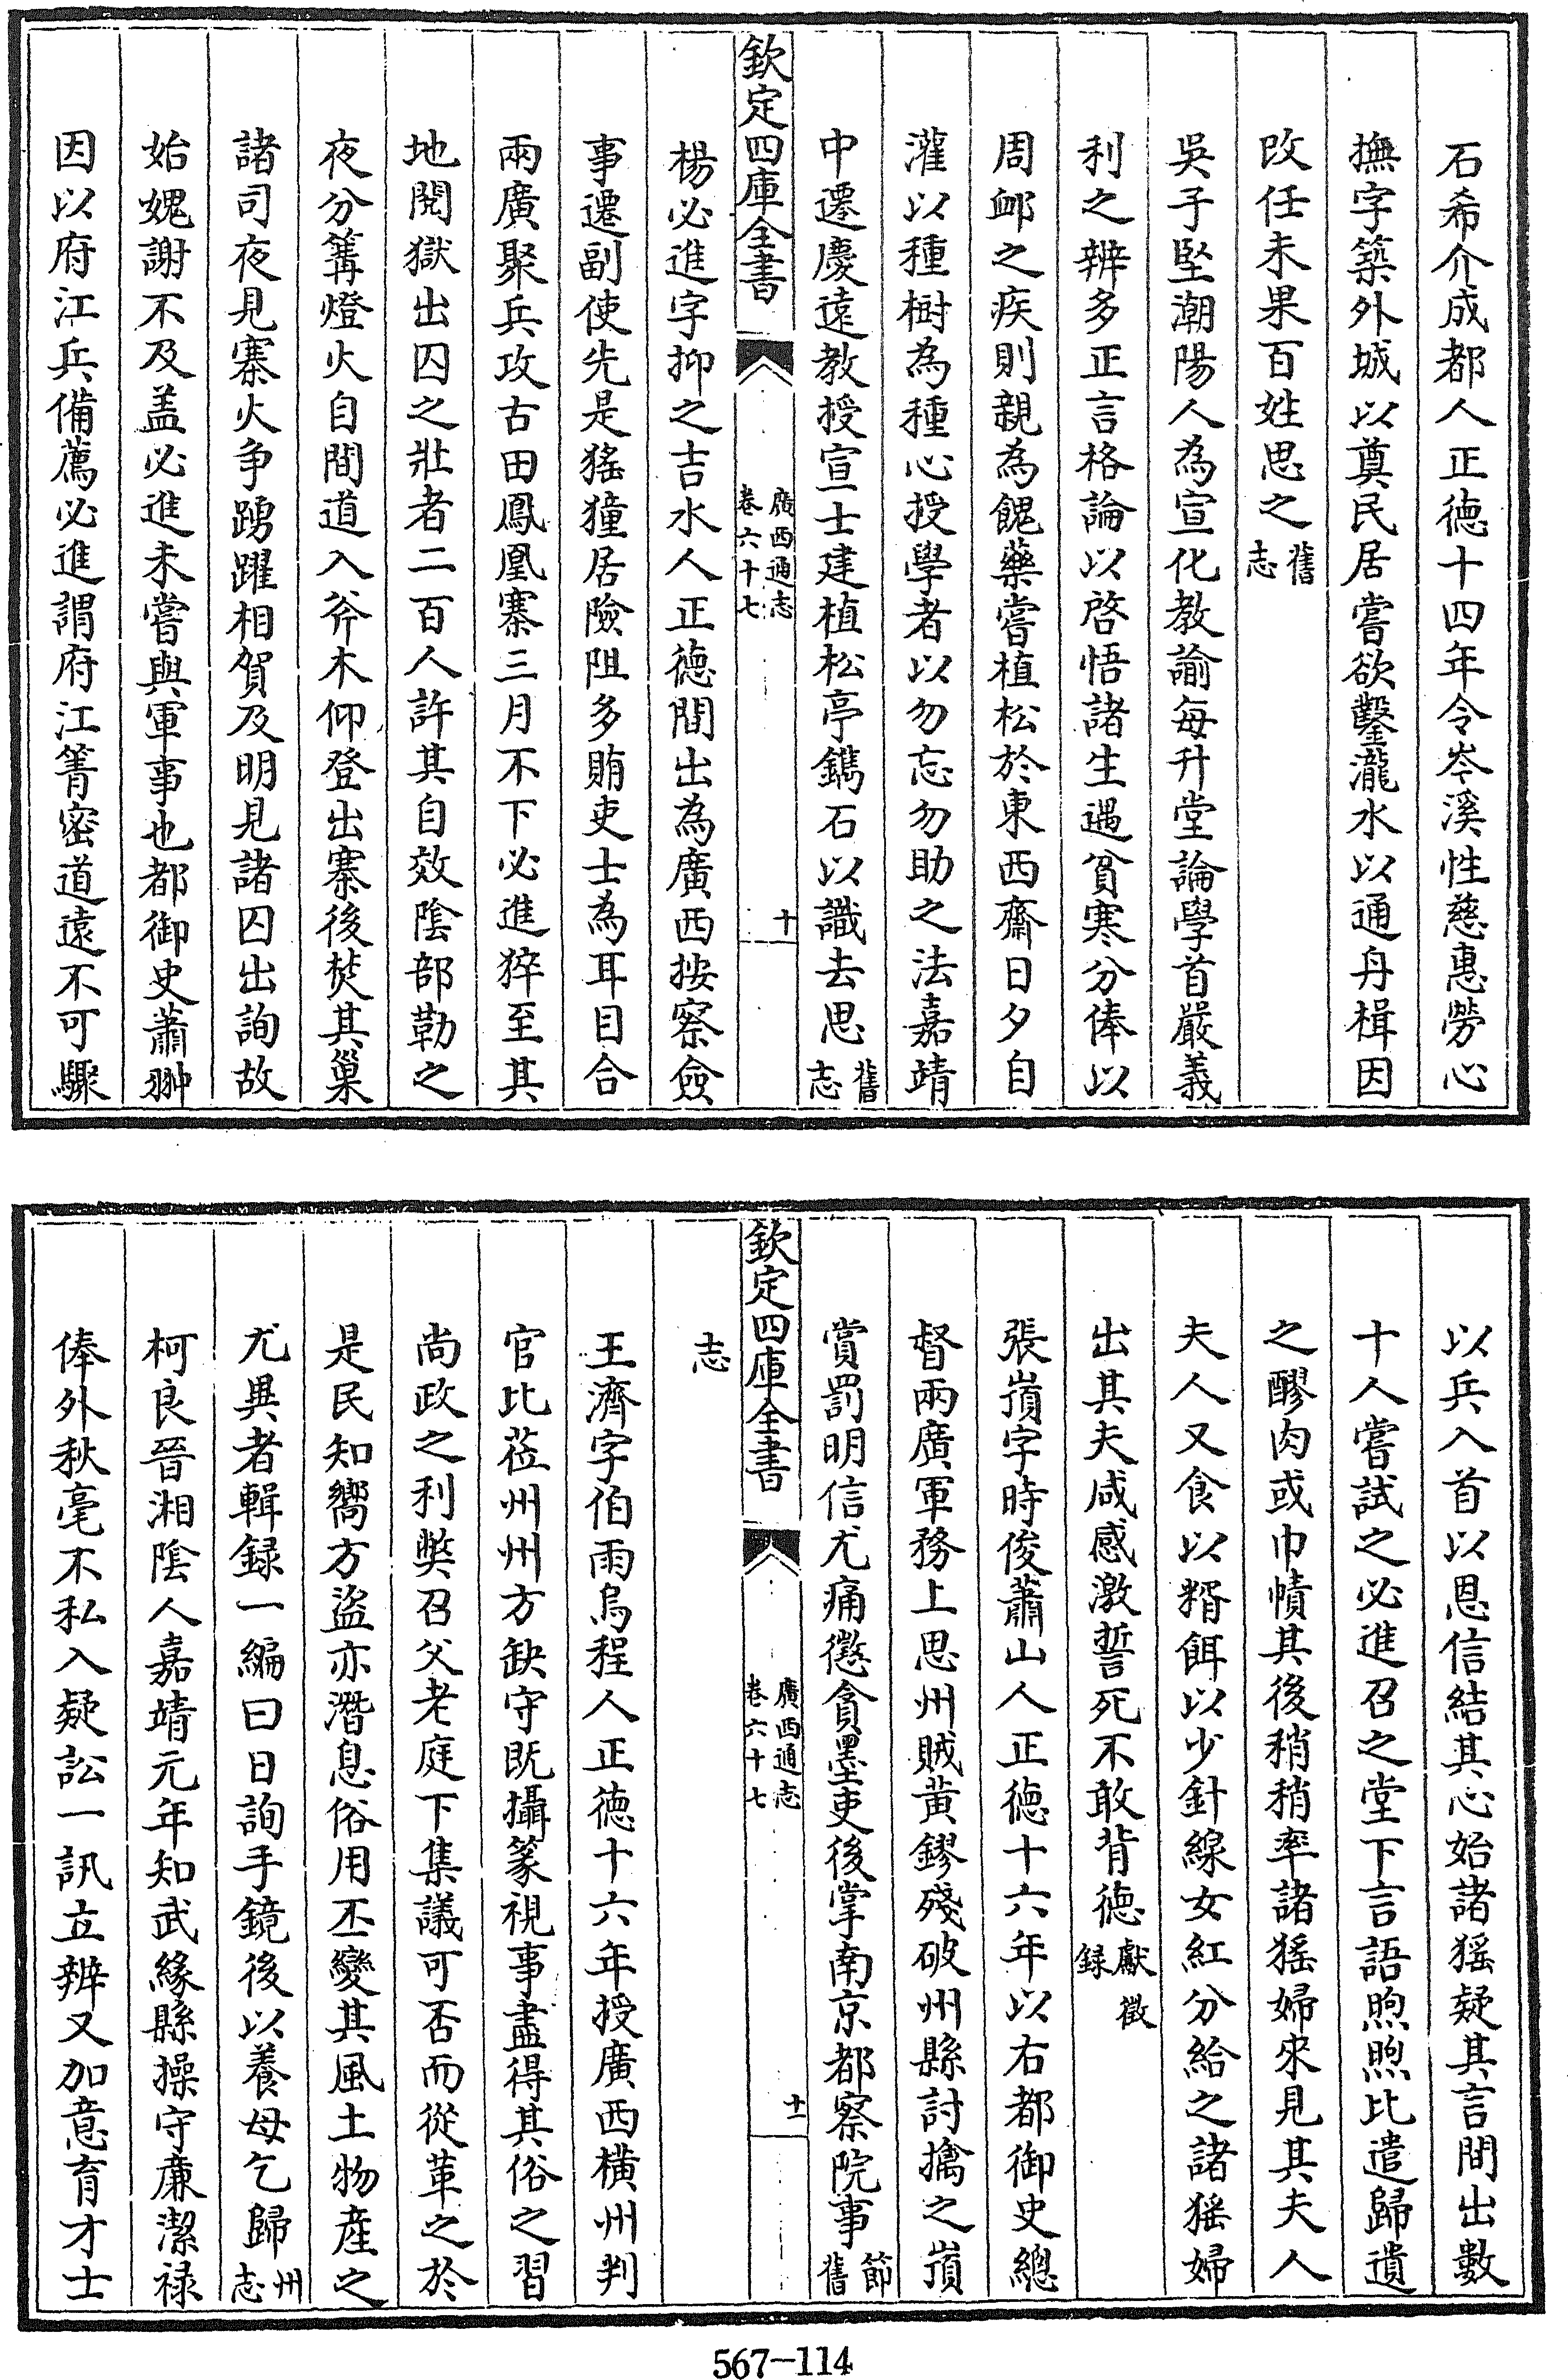 石希介成都人正徳十四年令岑溪性慈惠勞心
撫字築外城以奠民居嘗欲鑿瀧水以通舟楫因
改任未果百姓思之舊志
吳子堅潮陽人為宣化教諭每升堂論學首嚴義
利之辨多正言格論以啓悟諸生遇貧寒分俸以
周䘏之疾則親為餽藥嘗植松於東西齋日夕自
灌以種樹為種心授學者以勿忘勿助之法嘉靖
中遷慶遠教授宣士建植松亭鐫石以識去思舊志
欽定四庫全書
廣西通志
卷六十七
十
楊必進字抑之吉水人正徳間出為廣西按察僉
事遷副使先是猺獞居險阻多賄吏士為耳目合
兩廣聚兵攻古田鳳凰寨三月不下必進猝至其
地閱獄出囚之壯者二百人許其自效陰部勒之
夜分篝燈火自間道入斧木仰登出寨後焚其巢
諸司夜見寨火爭踴躍相賀及明見諸囚出詢故
始媿謝不及盖必進未嘗與軍事也都御史蕭翀
因以府江兵備薦必進謂府江箐密道遠不可驟
以兵入首以恩信結其心始諸猺疑其言間出數
十人嘗試之必進召之堂下言語喣喣比遣歸遺
之醪肉或巾幘其後稍稍率諸猺婦來見其夫人
夫人又食以糈餌以少針線女紅分給之諸猺婦
出其夫咸感激誓死不敢背徳獻徵録
張嵿字時俊蕭山人正徳十六年以右都御史總
督兩廣軍務上思州賊黃鏐殘破州縣討擒之嵿
賞罰明信尤痛懲貪墨吏後掌南京都察院事節舊
欽定四庫全書
廣西通志
卷六十七
十一
志
王濟字伯雨烏程人正徳十六年授廣西横州判
官比莅州州方缺守既攝篆視事盡得其俗之習
尚政之利獘召父老庭下集議可否而從革之於
是民知嚮方盜亦潛息俗用丕變其風土物產之
尤異者輯録一編曰日詢手鏡後以養母乞歸州志
柯良晉湘陰人嘉靖元年知武緣縣操守亷潔禄
俸外秋毫不私入疑訟一訊立辨又加意育才士
567-114